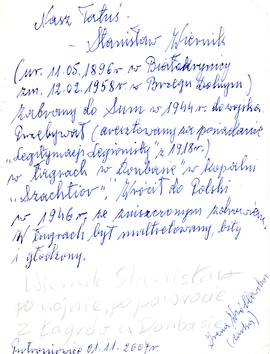 Nasz Tatuś -
- Stanisław Wiernik
(ur. 11.05.1896r w Białokrynicy
zm. 12.02.1958r w Brzegu Dolnym)
zabrany do Sum w 1944r. do wojska
Przebywał (aresztowany za posiadanie
„Legitymacji Legionisty" z 1918r.)
w łagrach w „Donbasie" w kopalni
„Szachtior". Wrócił do Polski
w 1946r, ze zniszczonym zdrowiem.
W łagrach był maltretowany, bity
i głodzony.
Wiernik Stanisław
po wojnie, po powrocie
z łagrów w Donbasie
01.11.2007r.
(córka)